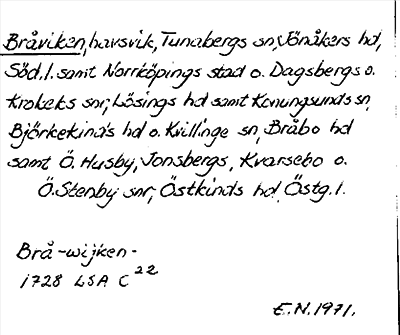 Bråviken, havsvik, Tunabergs sn, Jönåkers hd,
Söd.l. samt Norrköpings stad o. Dagsbergs o.
Krokeks snr, Lösings hd samt Konungsunds sn,
Björkekinds hd o. Kvillinge sn, Bråbo hd
samt Ö. Husby, Jonsbergs, Kvarsebo o.
Ö. Stenby snr, Östkinds hd, Östg.l.
Brå-wijken-
1728 LSA C22
E.N. 1971.